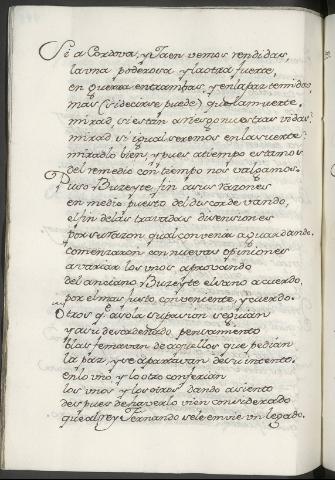 Si a Cordova, y Jaen vemos rendidas,
la una poderosa y la otra fuerte,
en guerra entrambas, y en la paz temidas
mas (si decirse puede) que la muerte.
mirad si están a riesgo nuestras vidas
mirad si igual seremos en la suerte
miradlo bien, y pues a tiempo estamos
del remedio con tiempo nos valgamos.
Puso Buzeyte fin a sus razones
en medio puesto del discorde vando,
el fin de las travadas disensiones
por su razon qual convenia aguardando.
comenzaron con nuevas opiniones
a variar los unos aprovando
del anciano Buzeyte el sano acuerdo
por el mas justo, conveniente, y cuerdo.
Otros q. a sola su pasion seguian
y a su desordenado pensamiento
blasfemavan de aquellos que pedian
la paz, y se apartavan de su intento.
en lo uno, y lo otro conferian
los unos y los otros dando asiento
despues de haverlo vien considerado
que al rey Fernando se le envie un legado.